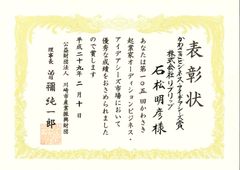 表彰状
かわさきビジネス・アイデアシーズ賞
株式会社リプリップ
石松明彦様
あなたは第一〇五回かわさき
起業家オーディションビジネス・
アイデアシーズ市場において
優秀な成績をおさめられました
ので賞します
平成二十九年二月十日
公益財団法人 川崎市産業振興財団
理事長 曽禰純一郎